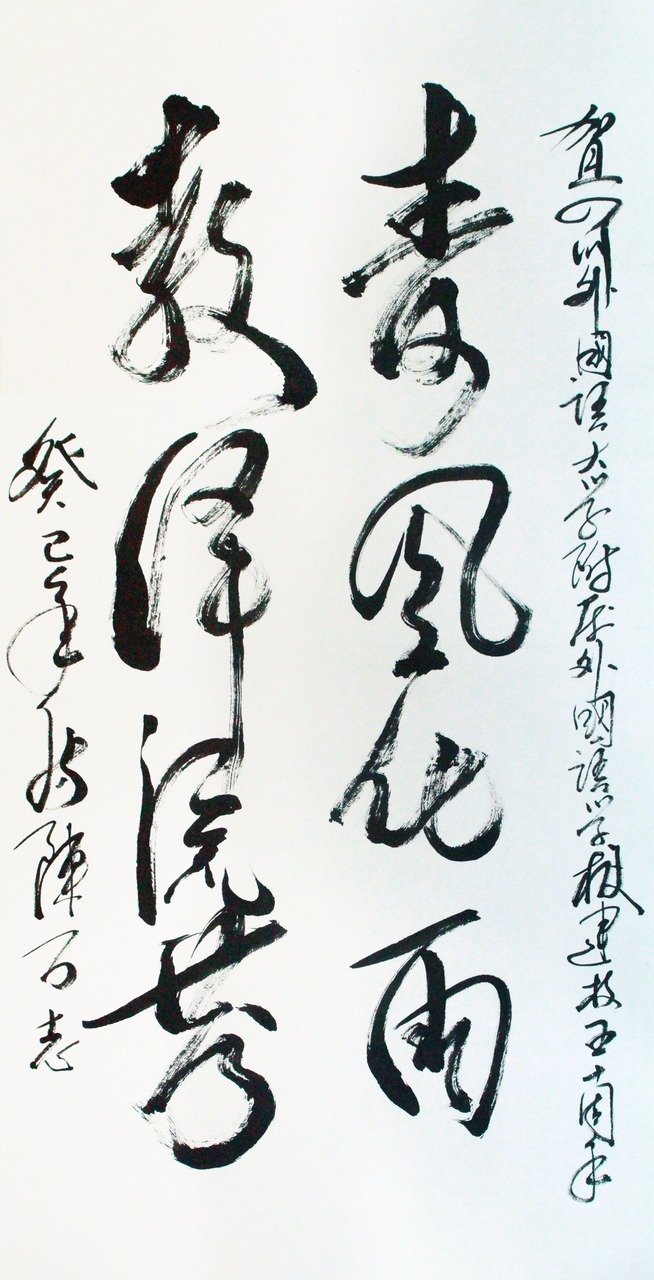 賀四川外國語大学附属外國語学校建校五十周年
春風化雨
教澤流芳
癸巳年 陳 志